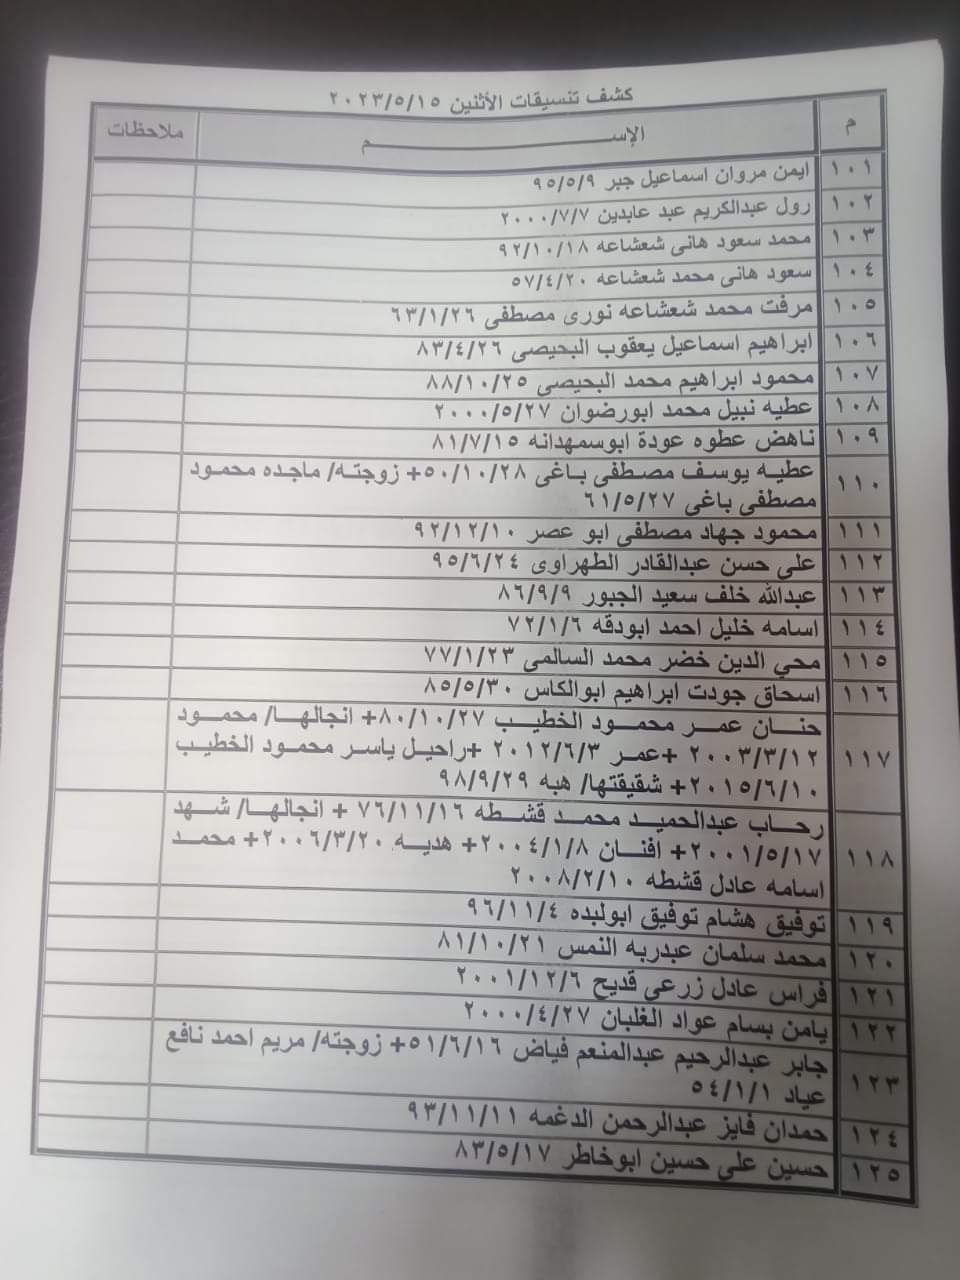 كشف تنسيقات الأثنين ٢٠٢٣/٥/١٥
م الإســـم ملاحظات
١٠١ ايمن مروان اسماعيل جبر ٩٥/٥/٩
١٠٢ رول عبدالكريم عبد عابدين ٢٠٠٠/٧/٧
١٠٣ محمد سعود هانى شعشاعه ٩٢/١٠/١٨
١٠٤ سعود هانى محمد شعشاعه ٥٧/٤/٢٠
١٠٥ مرفت محمد شعشاعه نورى مصطفى ٦٣/١/٢٦
١٠٦ ابراهيم اسماعيل يعقوب البحيصى ٨٣/٤/٢٦
١٠٧ محمود ابراهيم محمد البحيصى ٨٨/١٠/٢٥
١٠٨ عطيه نبيل محمد ابورضوان ٢٠٠٠/٥/٢٧
١٠٩ ناهض عطوه عودة ابوسمهدانه ٨١/٧/١٥
١١٠ عطيه يوسف مصطفى باغى ٥٠/١٠/٢٨+ زوجته/ ماجده محمود
مصطفى باغى ٦١/٥/٢٧
١١١ محمود جهاد مصطفى ابو عصر ٩٢/١٢/١٠
١١٢ على حسن عبدالقادر الطهراوى ٩٥/٦/٢٤
١١٣ عبدالله خلف سعيد الجبور ٨٦/٩/٩
١١٤ اسامه خليل احمد ابودقه ٧٢/١/٦
١١٥ محي الدين خضر محمد السالمى ٧٧/١/٢٣
١١٦ اسحاق جودت ابراهيم ابوالكاس ٨٥/٥/٣٠
١١٧ حنان عمر محمود الخطيب ٨٠/١٠/٢٧+ انجالها/ محمود
٢٠٠٣/٣/١٢ +عمر ٢٠١٢/٦/٣ +راحيل ياسر محمود الخطيب
٢٠١٥/٦/١٠+ شقيقتها/ هبه ٩٨/٩/٢٩
١١٨ رحاب عبدالحميد محمد قشطه ٧٦/١١/١٦ + انجالها/ شهد
٢٠٠١/٥/١٧+ افنان ٢٠٠٤/١/٨+ هديه ٢٠٠٦/٣/٢٠+ محمد
اسامه عادل قشطه ٢٠٠٨/٢/١٠
١١٩ توفيق هشام توفيق ابولبده ٩٦/١١/٤
١٢٠ محمد سلمان عبدربه النمس ٨١/١٠/٢١
١٢١ فراس عادل زرعى قديح ٢٠٠١/١٢/٦
١٢٢ يامن بسام عواد الغلبان ٢٠٠٠/٤/٢٧
١٢٣ جابر عبدالرحيم عبدالمنعم فياض ٥١/٦/١٦+ زوجته/ مريم احمد نافع
عياد ٥٤/١/١
١٢٤ حمدان فايز عبدالرحمن الدغمه ٩٣/١١/١١
١٢٥ حسين على حسين ابوخاطر ٨٣/٥/١٧